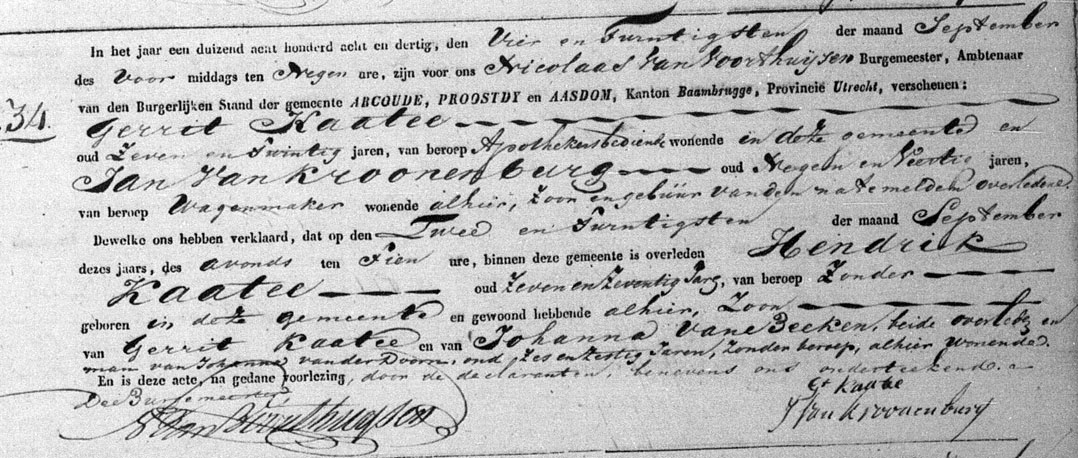 In het jaar een duizend acht honderd acht en dertig, den Vier en Twintigsten der maand September
des Voor middags ten Negen ure, zijn voor ons Nicolaas Van Voorthuijsen Burgemeester, Ambtenaar
van den Burgerlijken Stand der gemeente ABCOUDE, PROOSTDY en AASDOM, Kanton Baambrugge, Provincie Utrecht, verschenen:
34.
Gerrit Kaatee
oud Zeven en Twintig jaren, van beroep Apothekersbediende wonende in deze gemeente en
Jan Van Kroonenburg oud Negen en Veertig jaren,
van beroep Wagenmaker wonende alhier, Zoon en gebuur van den natemelden overledene
Dewelke ons hebben verklaard, dat op den Twee en Twintigsten der maand September
dezes jaars, des avonds ten Tien ure, binnen deze gemeente is overleden Hendrik
Kaatee oud Zeven en Zeventig Jaren, van beroep Zonder
geboren in deze gemeente en gewoond hebbende alhier, Zoon
van Gerrit Kaatee en van Johanna Van Beeken, beide overleden en
man van Johanna van der Doorn, oud Zes en Zestig Jaren, Zonder beroep, alhier wonende.
En is deze acte, na gedane voorlezing, door de declaranten, benevens ons onderteekend.
De Burgemeester
N Van Voorthuijsen
Gt Kaatee
J Van Kroonenburg